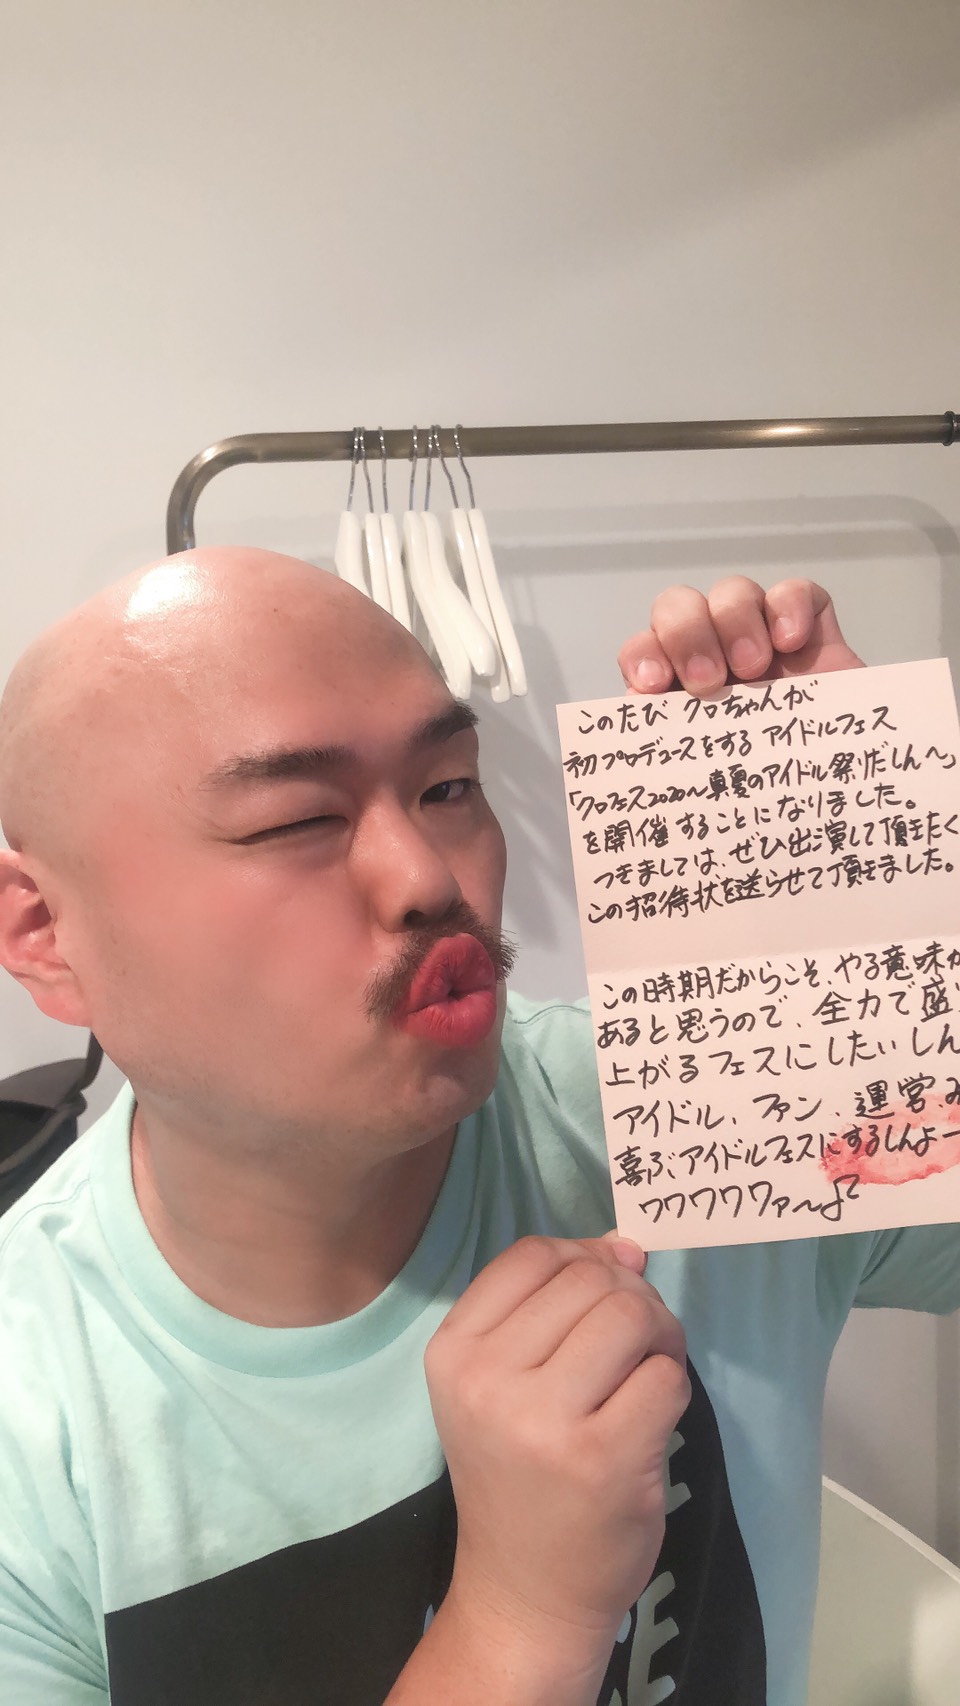 このたび クロちゃんが
初プロデュースをする アイドルフェス
「クロフェス2020〜真夏のアイドル祭りだしん〜」
を開催することになりました。
つきましては、ぜひ出演して頂きたく
この招待状を送らせて頂きました。
この時期だからこそ、やる意味が
あると思うので、全力で盛り
上がるフェスにしたいしん
アイドル、ファン、運営、み
喜ぶアイドルフェスにするしんよー
ワワワワワァ〜♪
E
E